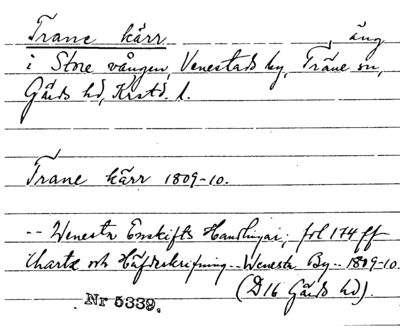 Trane kärr, äng
i Store vången, Venestads by, Träne sn,
Gärds hd, Krstd. l.
Trane kärr 1809-10.
-- Wenesta Enskifts Handlingar; fol 174 ff
Charta och Häfdeskrifning -- Wenesta By -- 1809-10.
(D16 Gärds hd).
Nr 5339.